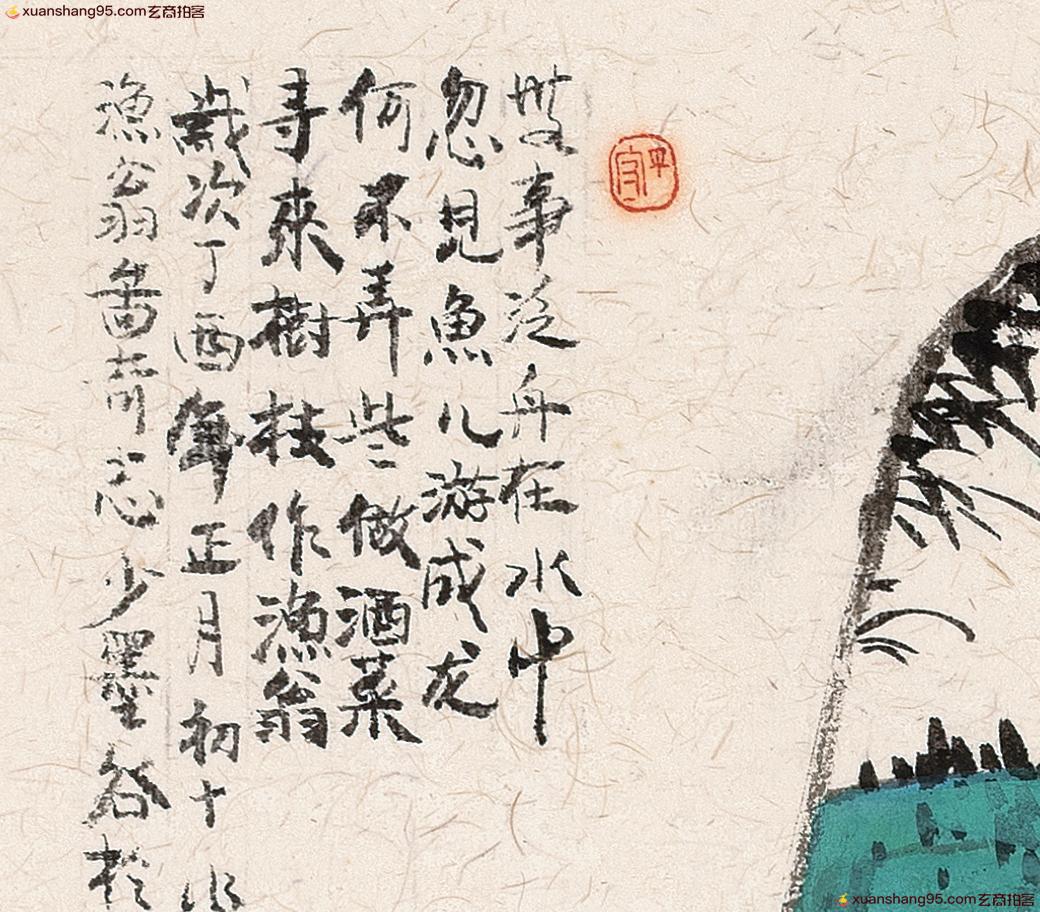 xuanshang95.com玄商拍客
無事泛舟在水中
忽見魚儿游成龙
何不弄些做酒菜
寻來樹枝作漁翁
歲次丁酉年正月初十
漁翁志少墨於
xuanshang95.com玄商拍客